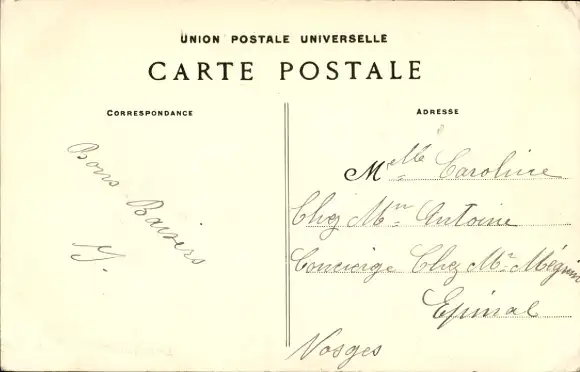 UNION POSTALE UNIVERSELLE
CARTE POSTALE
CORRESPONDANCE
Bons Baisers
Y.
ADRESSE
Melle Caroline
Chez Mm Antoine
Concierge Chez Mr Méguin
Epinal
Vosges